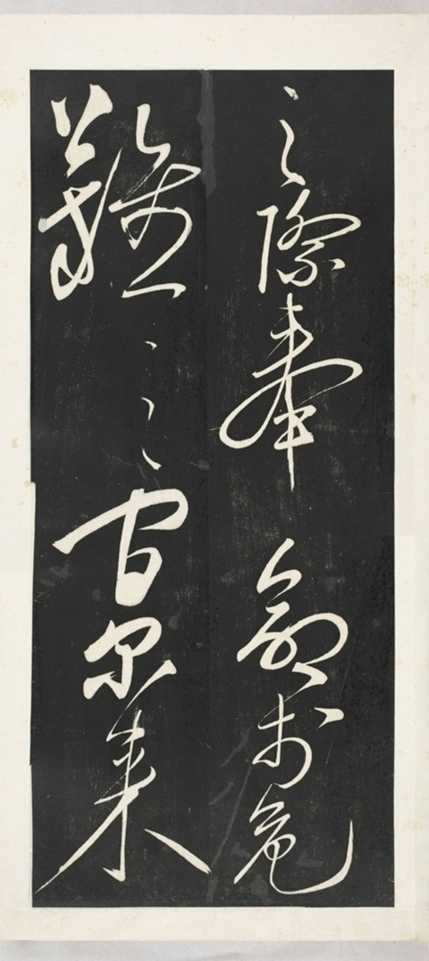 之際奉命於危
難之間爾來